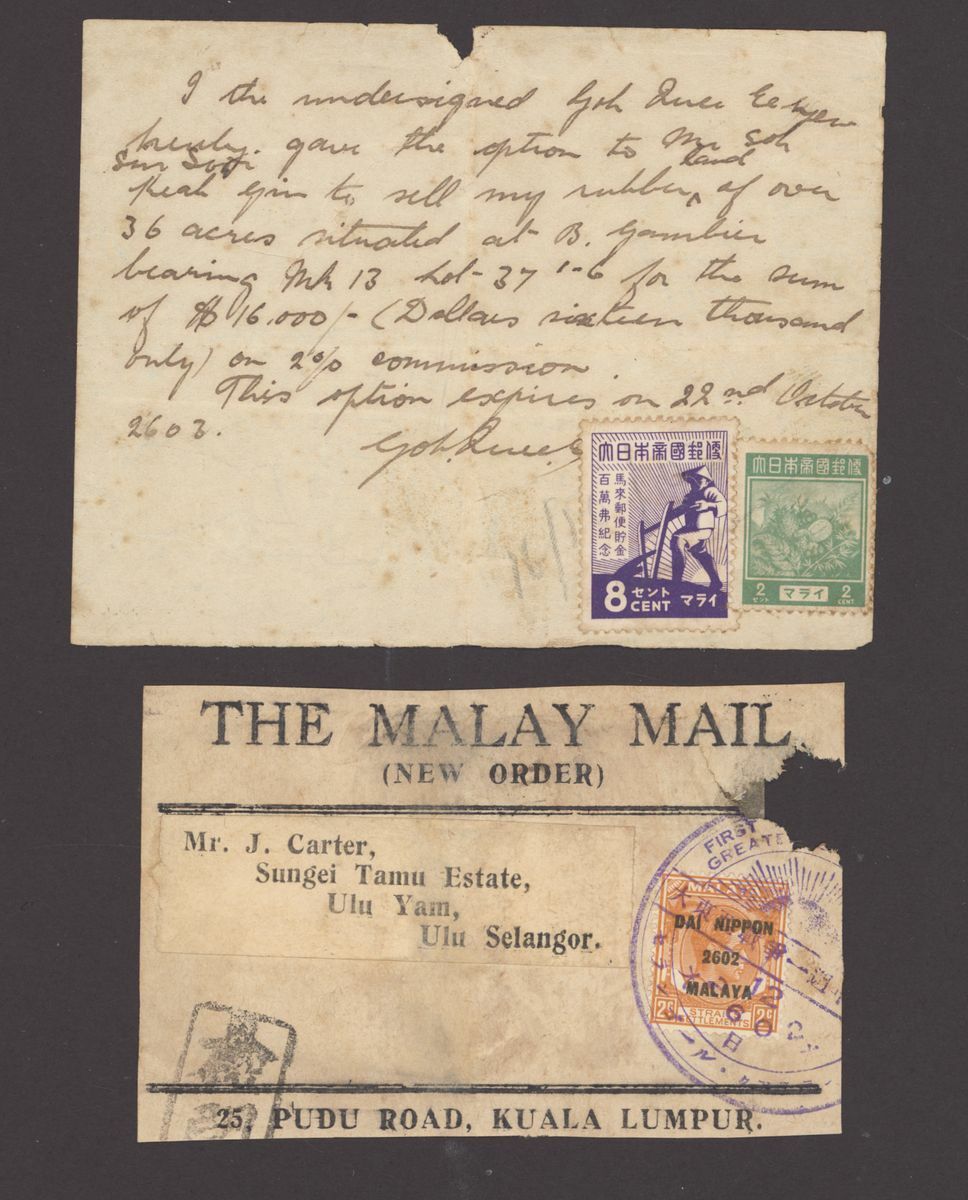 I the undersigned Goh Quee
hereby gave the option to Mr Soh
Peak Gin to sell my rubber land of over
36 acres situated at B. Gambier
bearing Mk 13 Lot 37 1-6 for the sum
of $16.000/- (Dollars sixteen thousand
only) on 2% commission.
This option expires on 22nd October
2603.
Goh Quee
大日本帝國郵便
馬來郵便貯金
百萬弗紀念
8 セント CENT マライ
大日本帝國郵便
2 セント マライ 2 CENT
THE MALAY MAIL
(NEW ORDER)
Mr. J. Carter,
Sungei Tamu Estate,
Ulu Yam,
Ulu Selangor.
FIRST
GREATE
DAI NIPPON
2602
MALAYA
2c STRAITS SETTLEMENTS 2c
25, PUDU ROAD, KUALA LUMPUR.